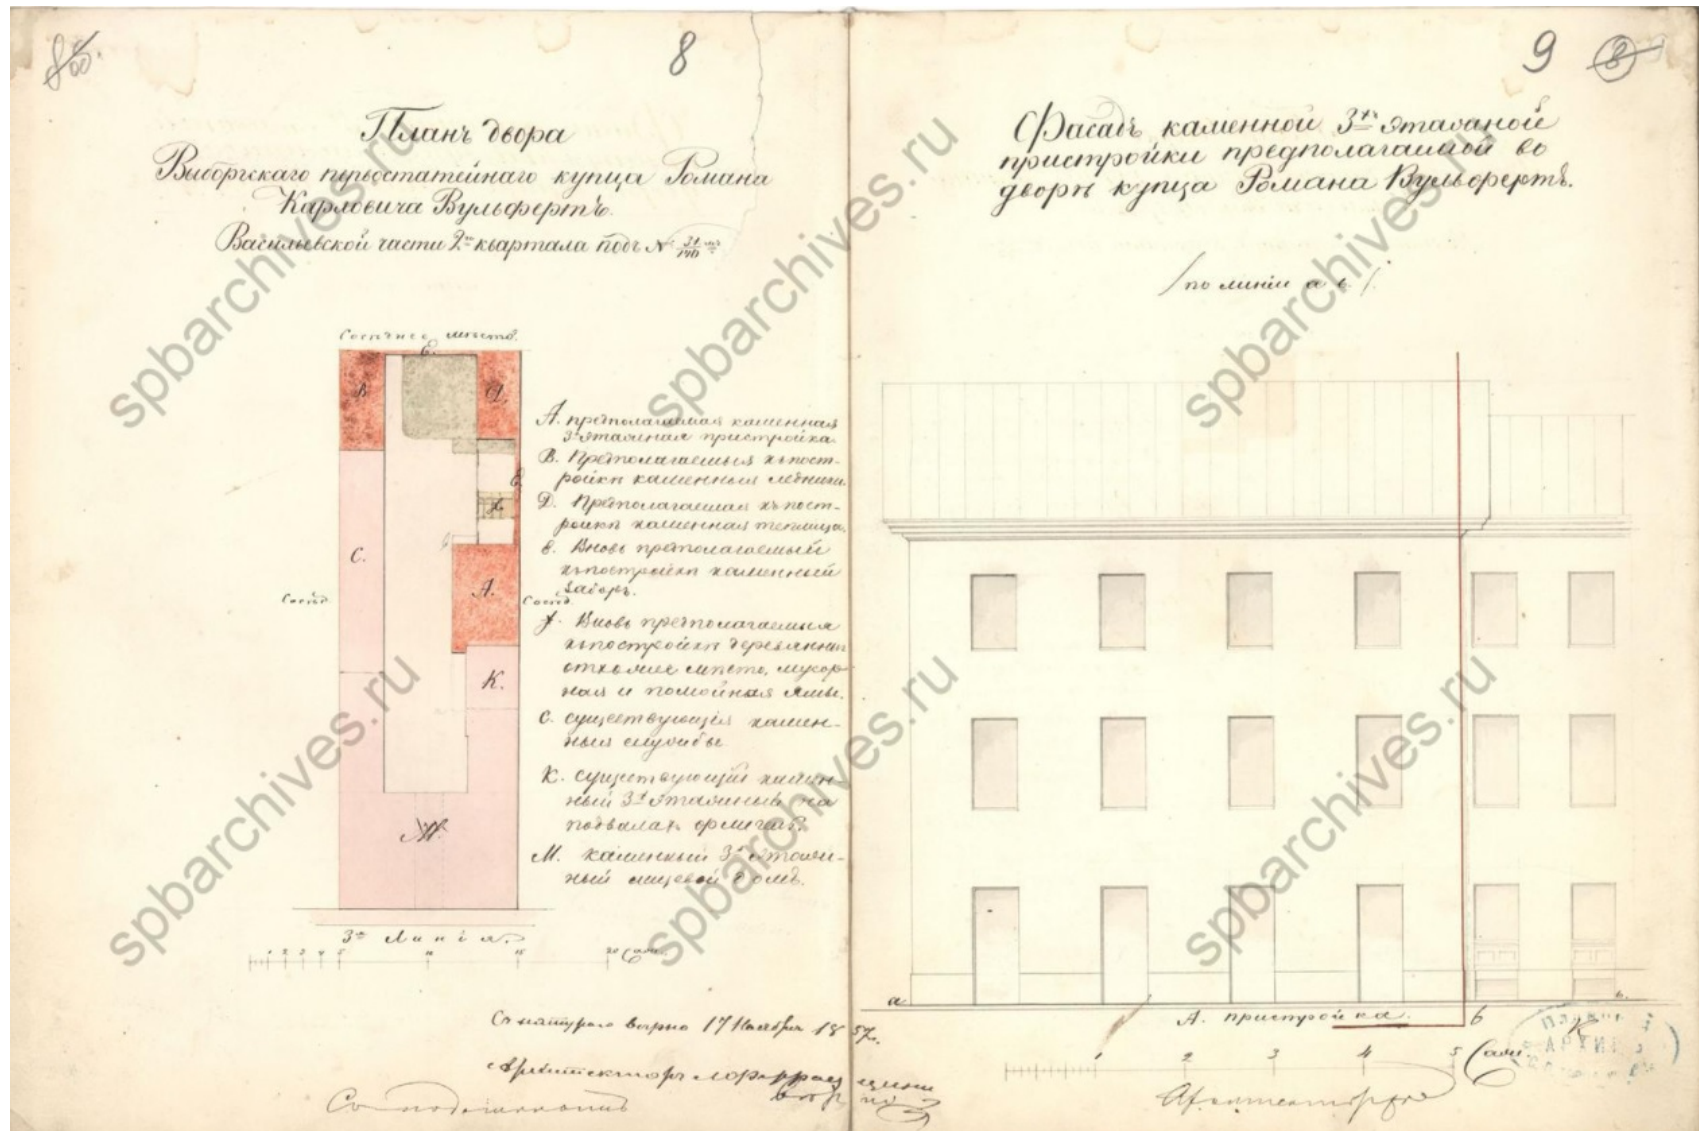 8
Планъ двора
Выборгскаго первостатейнаго купца Романа
Карловича Вульфертъ.
Васильевской части 2го квартала подъ №
Сосѣднее мѣсто.
Е.
В
Д.
Е.
С.
А.
К.
М.
Сосѣд.
Сосѣд.
А. предполагаемая каменная
3х этажная пристройка.
В. Предполагаемыя къ пост-
ройкѣ каменныя ледники.
Д. Предполагаемая къ пост-
ройкѣ каменная теплица.
е. Вновь предполагаемый
къ постройкѣ каменный
заборъ.
f. Вновь предполагаемыя
къ постройкѣ деревянныя
отхожее мѣсто, мусор-
ная и помойная ямы.
С. существующія камен-
ныя службы.
К. существующій камен-
ный 3х этажный на
подвалахъ флигель.
М. каменный 3х этаж-
ный лицевой домъ.
3я Линія.
1 2 3 4 5 10 15 20 Саж.
Съ натурою вѣрно 17 Ноября 1857.
Архитекторъ
Съ подлиннымъ
вѣрно
9 8
Фасадъ каменной 3хъ этажной
пристройки предполагаемой во
дворѣ купца Романа Вульфертъ.
/по линіи а в./
а
в.
А. пристройка.
б
К
1 2 3 4 5 Саж.
Архитекторъ
spbarchives.ru
spbarchives.ru
spbarchives.ru
spbarchives.ru
spbarchives.ru
spbarchives.ru